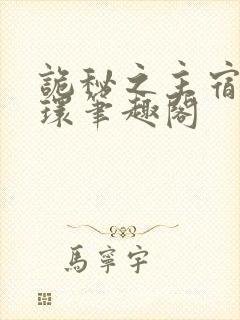 詭秘之主宿
環筆趣閣
馬寧宇